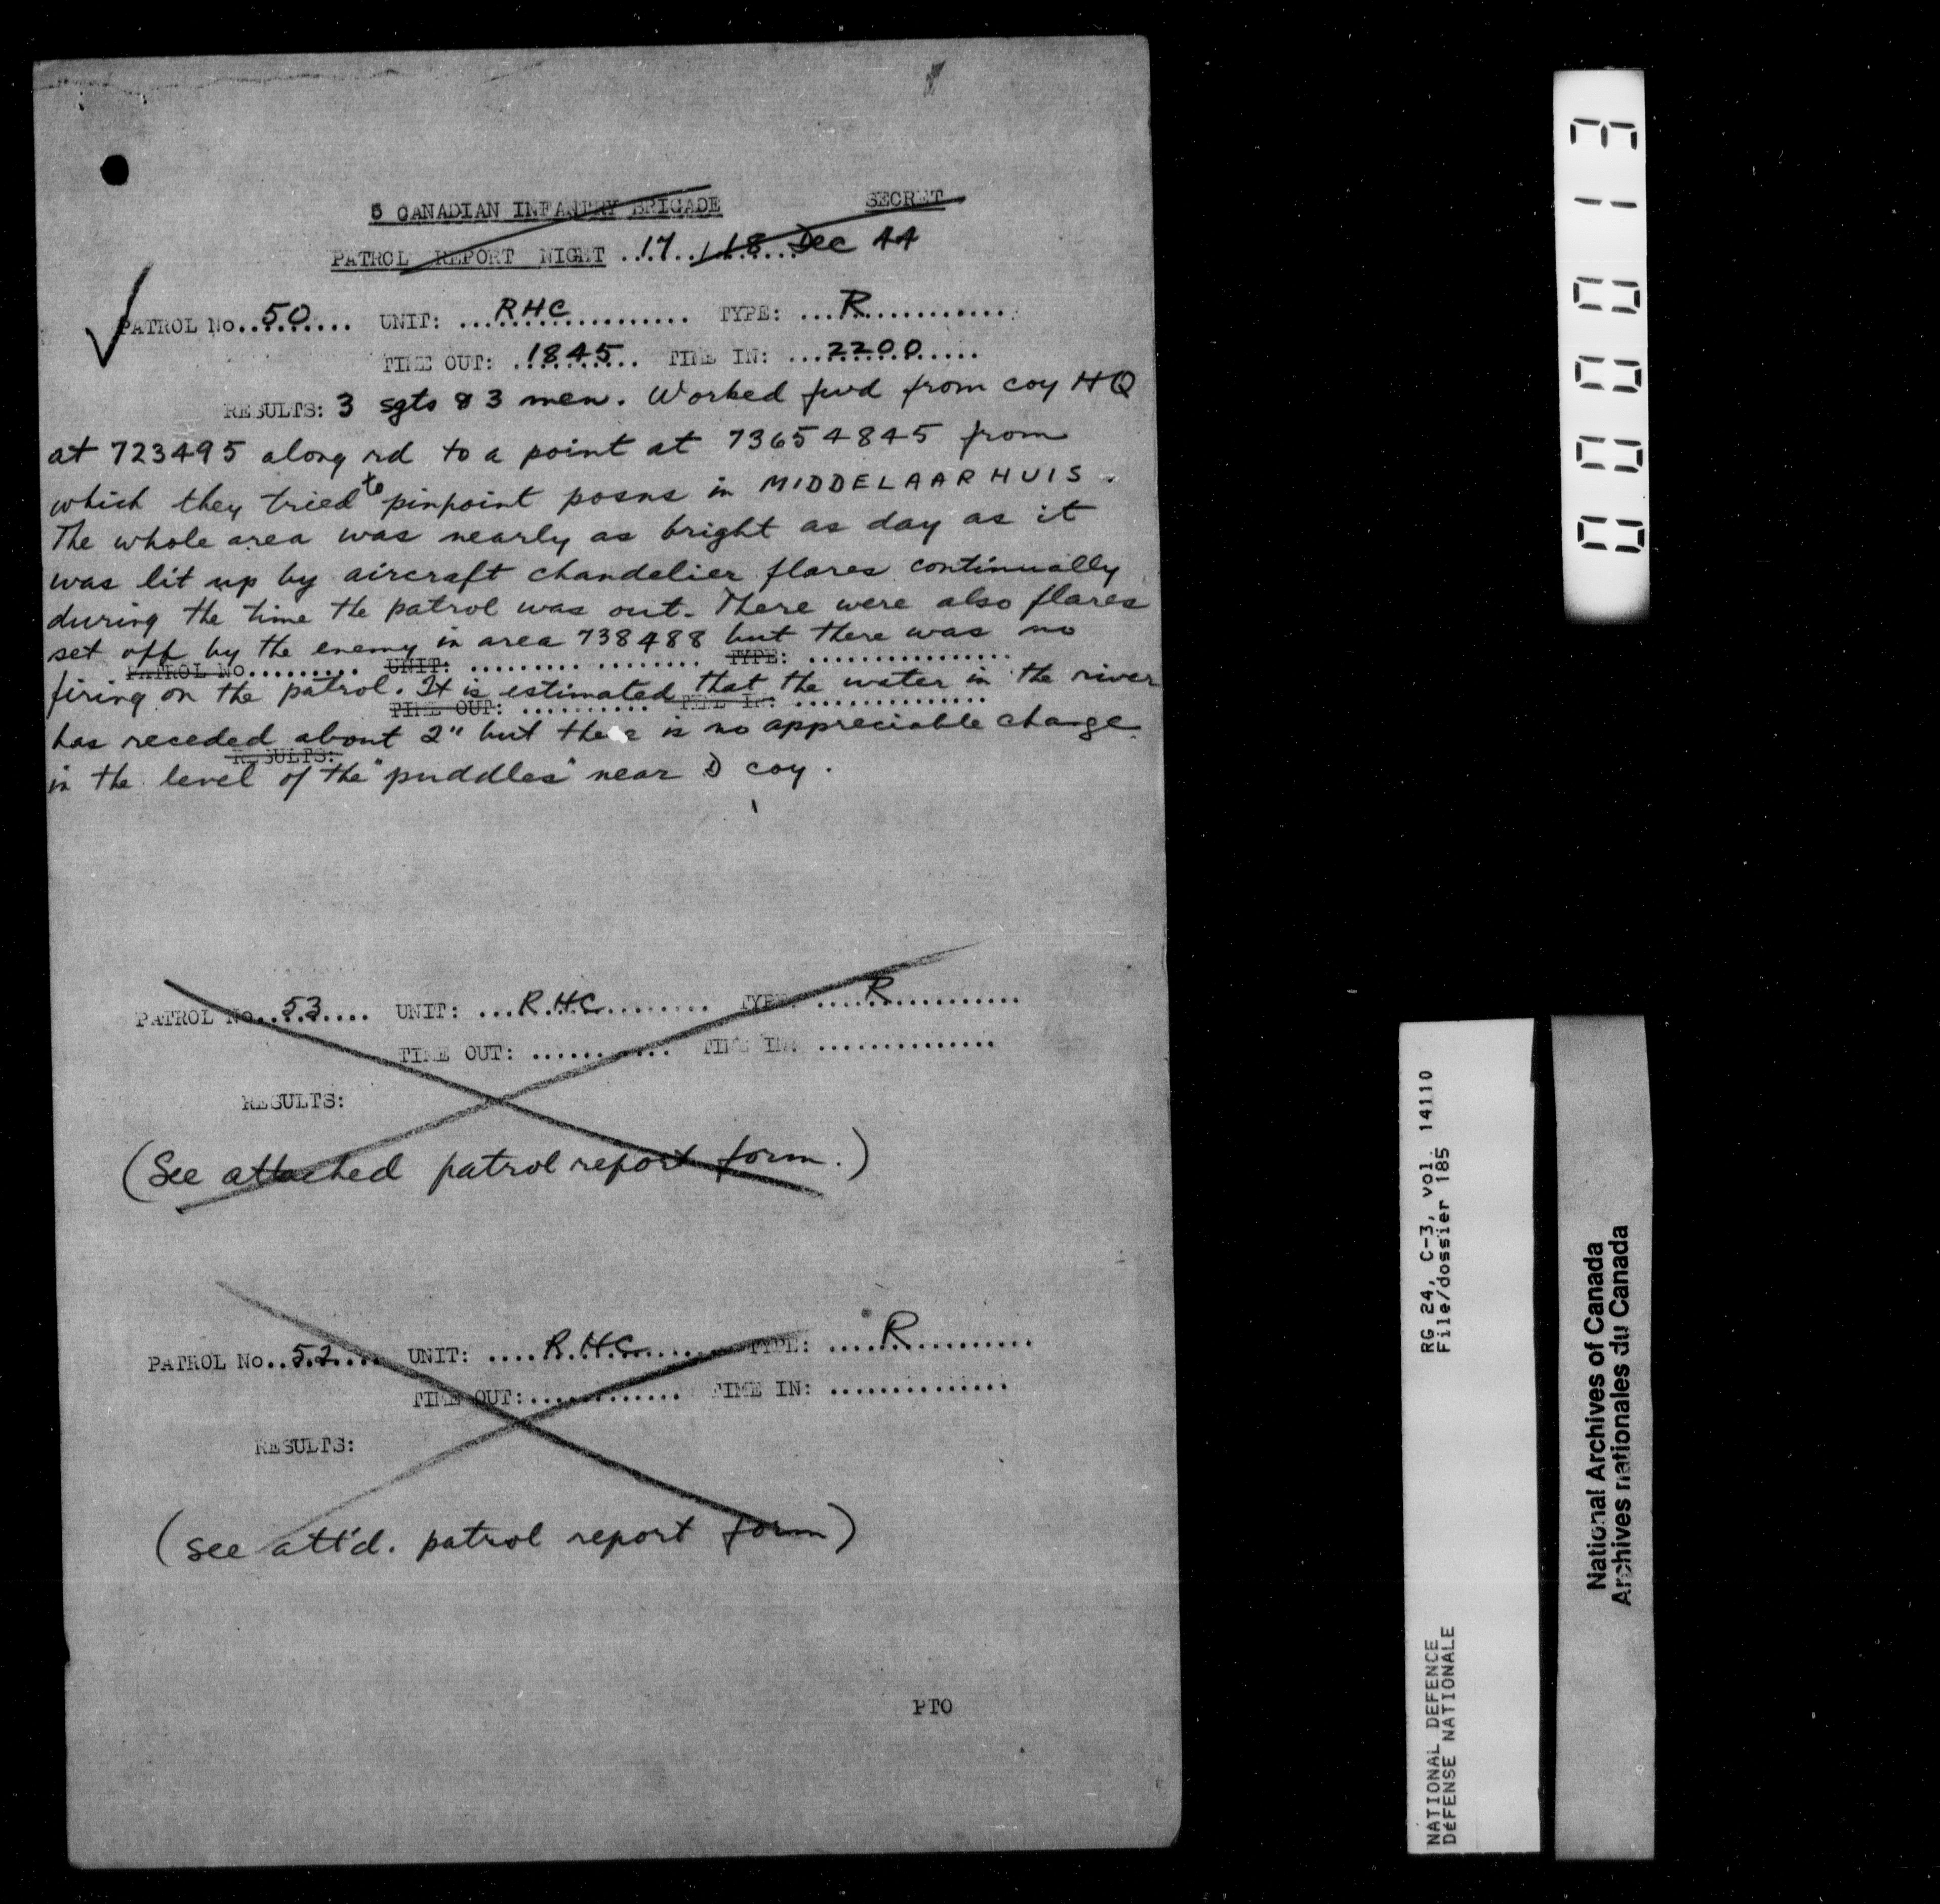 5 CANADIAN INFANTRY BRIGADE SECRET
PATROL REPORT NIGHT ..17../.18...Dec 44
PATROL No..50...... UNIT: ...RHC............ TYPE: ...R............
TIME OUT: .1845.. TIME IN: ...2200.....
RESULTS: 3 sgts & 3 men. Worked fwd from coy HQ
at 723495 along rd to a point at 73654845 from
which they tried to pinpoint posns in MIDDELAARHUIS.
The whole area was nearly as bright as day as it
was lit up by aircraft chandelier flares continually
during the time the patrol was out. There were also flares
set off by the enemy in area 738488 but there was no
PATROL No......... UNIT: .................. TYPE: ................
firing on the patrol. It is estimated that the water in the river
TIME OUT: .......... TIME IN: ...............
has receded about 2" but there is no appreciable change
RESULTS:
in the level of the "puddles" near D coy.
PATROL No..53.... UNIT: ...R.H.C......... TYPE: ....R............
TIME OUT: ........... TIME IN: ..............
RESULTS:
(See attached patrol report form.)
PATROL No..52.... UNIT: ....R.H.C....... TYPE: ....R..........
TIME OUT:............ TIME IN: ..............
RESULTS:
(see att'd. patrol report form)
PTO
000013
RG 24, C-3, vol. 14110
File/dossier 185
NATIONAL DEFENCE
DÉFENSE NATIONALE
National Archives of Canada
Archives nationales du Canada